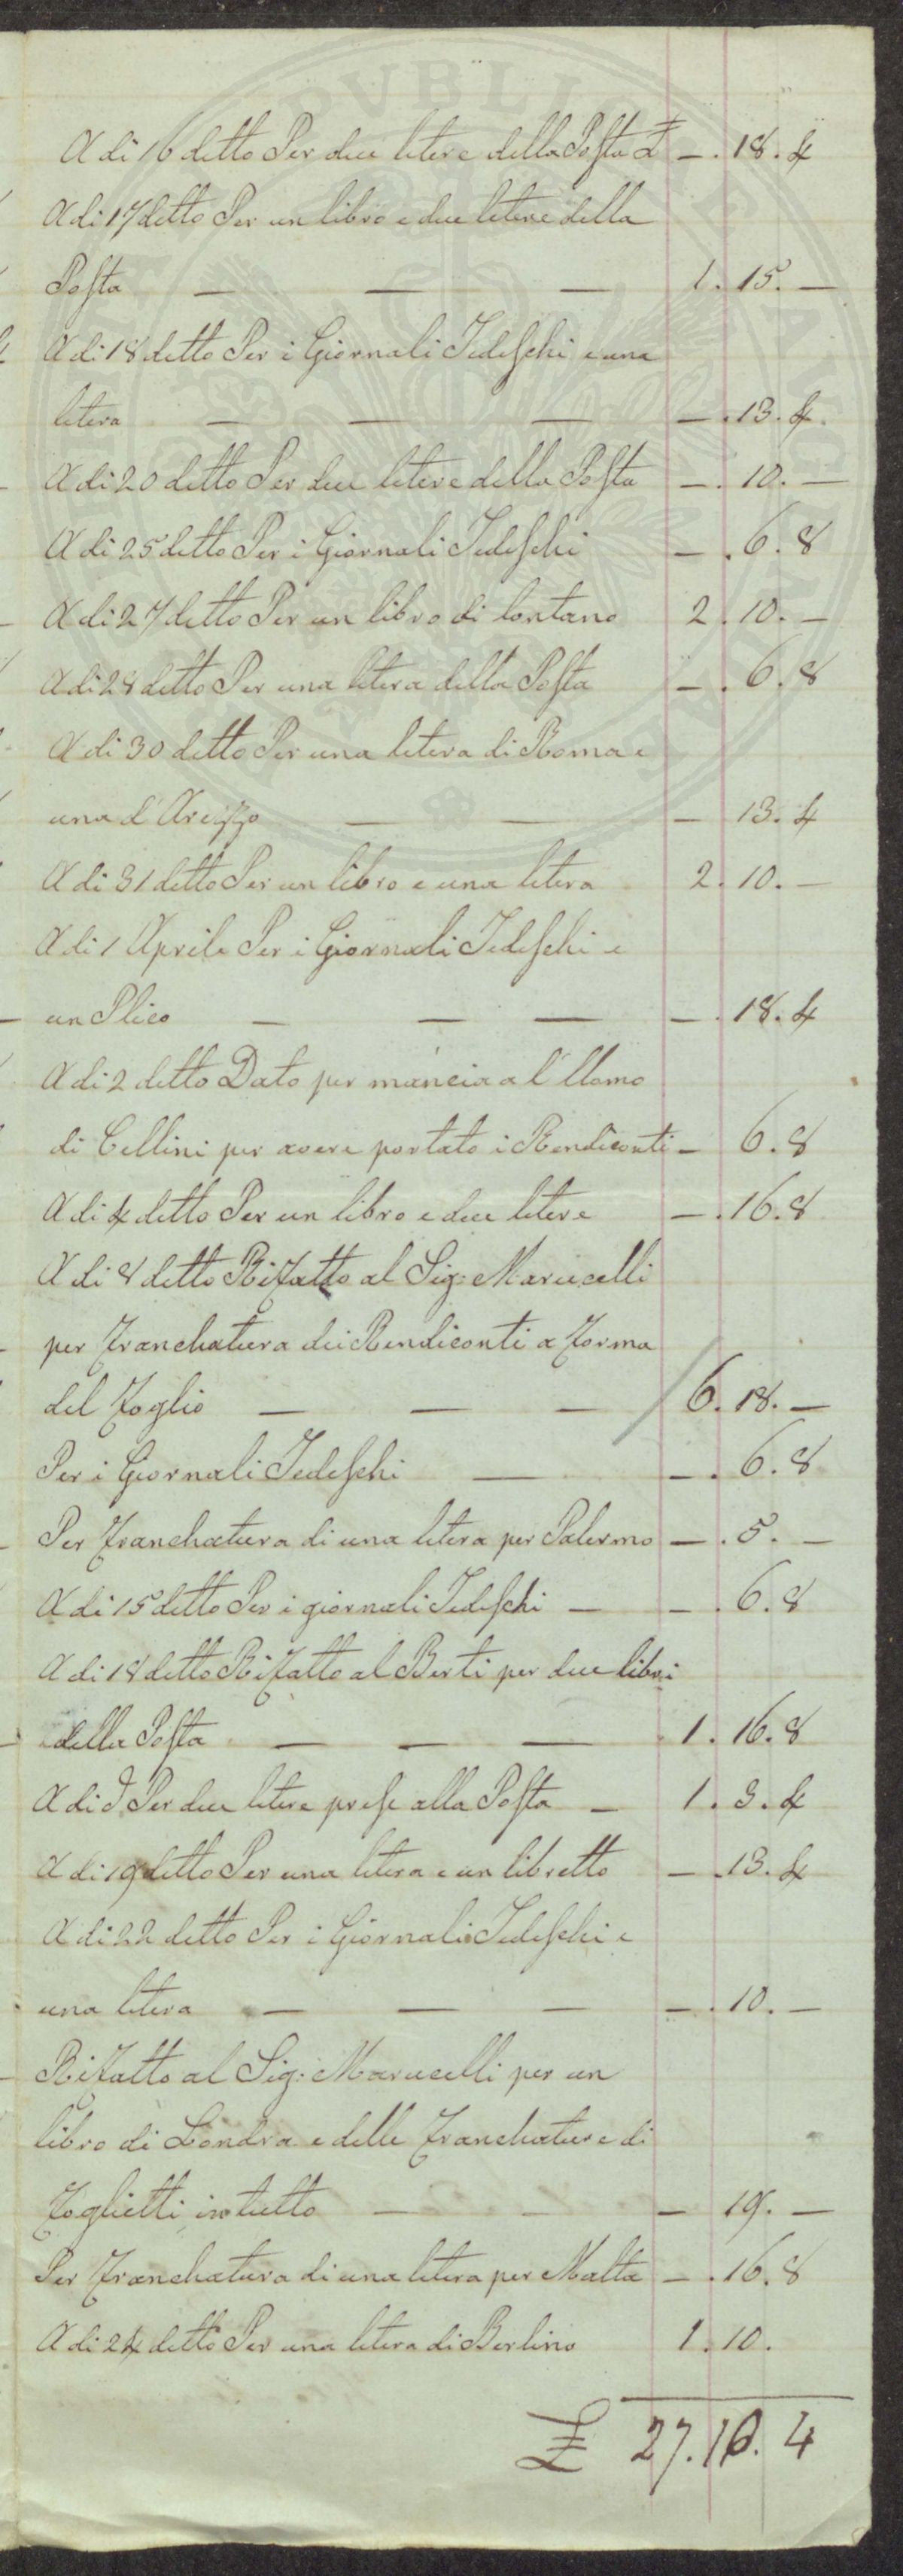 A di 16 detto Per due letere della Posta £ —. 18. 4
A di 17 detto Per un libro e due letere della
Posta — — — 1. 15. —
A di 18 detto Per i Giornali Tedeschi e una
letera — — — —. 13. 4.
A di 20 detto Per due letere della Posta —. 10. —
A di 25 detto Per i Giornali Tedeschi —. 6. 8
A di 27 detto Per un libro di lontano 2. 10. —
A di 28 detto Per una letera della Posta —. 6. 8
A di 30 detto Per una letera di Roma e
una d'Arezzo — — — 13. 4
A di 31 detto Per un libro e una letera 2. 10. —
A di 1 Aprile Per i Giornali Tedeschi e
un Plico — — — —. 18. 4
A di 2 detto Dato per mancia a l'Uomo
di Cellini per avere portato i Rendiconti — 6. 8
A di 4 detto Per un libro e due letere —. 16. 8
A di 8 detto Rifatto al Sig: Marucelli
per franchatura dei Rendiconti a forma
del foglio — — — / 6. 18. —
Per i Giornali Tedeschi — —. 6. 8
Per franchatura di una letera per Palermo —. 5. —
A di 15 detto Per i giornali Tedeschi — —. 6. 8
A di 18 detto Rifatto al Berti per due libri
della Posta — — — 1. 16. 8
A di d Per due letere prese alla Posta — 1. 3. 4
A di 19 detto Per una letera e un libretto —. 13. 4
A di 22 detto Per i Giornali Tedeschi e
una letera — — — —. 10. —
Rifatto al Sig: Marucelli per un
libro di Londra e delle franchature di
foglietti in tutto — — — 19. —
Per franchatura di una letera per Malta —. 16. 8
A di 24 detto Per una letera di Berlino 1. 10.
£ 27. 16. 4